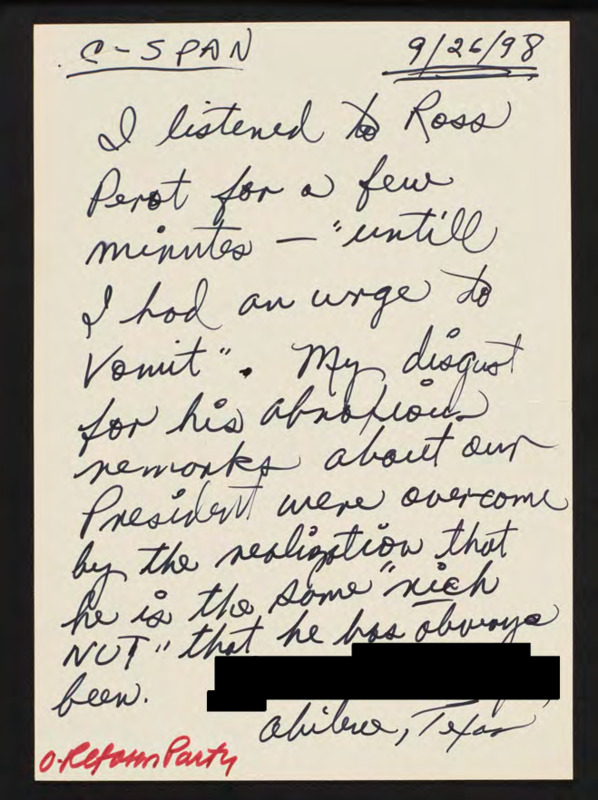 C-SPAN 9/26/98
I listened to Ross
Perot for a few
minutes — "untill
I had an urge to
Vomit". My disgust
for his
remarks about our
President were overcome
by the realization that
he is the same "rich
NUT" that he has always
been.
Abilene, Texas
0-Reform Party